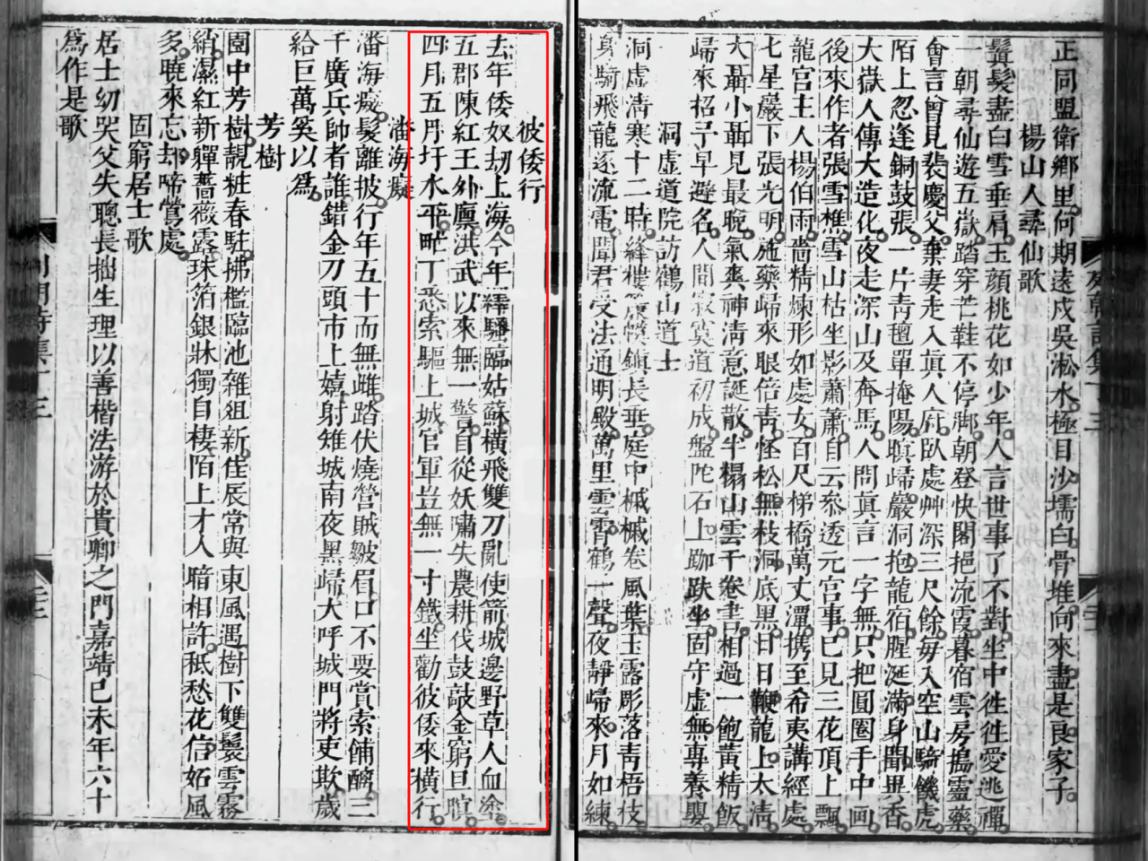 正同盟衛鄉里何期遠戍吳淞水極目沙壖白骨堆向來盡是良家子
楊山人尋仙歌
鬢髮盡白雪垂肩玉顏桃花如少年人言世事了不對坐中往往愛逃禪
一朝尋仙遊五嶽踏穿芒鞋不停脚朝登快閣挹流霞暮宿雲房搗靈藥
會言曾見裴慶父棄妻走入真人府臥處艸深三尺餘毋入空山騎餓虎
陌上忽逢銅鼓張一片青氊單掩陽暝歸巖洞抱龍宿腥涎滿身聞異香
大嶽人傳大造化夜走深山及奔馬人問真言一字無只把圓圈手中画
後來作者張雪樵雪山枯坐影蕭蕭自云叅透元宮事已見三花頂上飄
龍宮主人楊伯雨嗇精煉形如處女百尺梯橋萬丈潭攜至希夷講經處
七星巖下張光明施藥歸來眼倍青怪松無枝洞底黑日日鞭龍上太清
大聶小聶見最晚氣爽神清意誕散半榻山雲千卷書相過一飽黃精飯
歸來招予早避名人間寂寞道初成盤陀石上跏趺坐固守虛無專養嬰
洞虛道院訪鶴山道士
洞虛清寒十二時絳樓鎖長垂庭中槭槭卷風葉玉露彫落青梧枝
身騎飛龍逐流電聞君受法通明殿萬里雲霄鶴一聲夜靜歸來月如練
彼倭行
去年倭奴刼上海今年繹騷臨姑蘇橫飛雙刀亂使箭城邊野草人血塗
五郡陳紅王外廩洪武以來無一警自從妖嘯失農耕伐鼓敲金窮旦暝
四月五月圩水平畊丁悉索驅上城官軍豈無一寸鐵坐勸彼倭來橫行
潘海癡
潘海癡髮離披行年五十而無雌踏伏燒營賊皺眉口不要賞索餔醊三
千廣兵帥者誰錯金刀頭市上嬉射雉城南夜黑歸大呼城門將吏欺歲
給巨萬奚以爲
芳樹
園中芳樹靚粧春駐拂檻臨池雜組新佳辰常與東風遇樹下雙鬟雲霧
綃濕紅新嚲薔薇露珠箔銀牀獨自棲陌上才人暗相許秪愁花信妬風
多曉來忘却啼鶯處
固窮居士歌
居士幼哭父失聰長拙生理以善楷法游於貴卿之門嘉靖已未年六十
爲作是歌